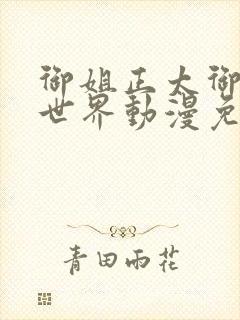 御姐正太御
世界動漫免
青田雨花